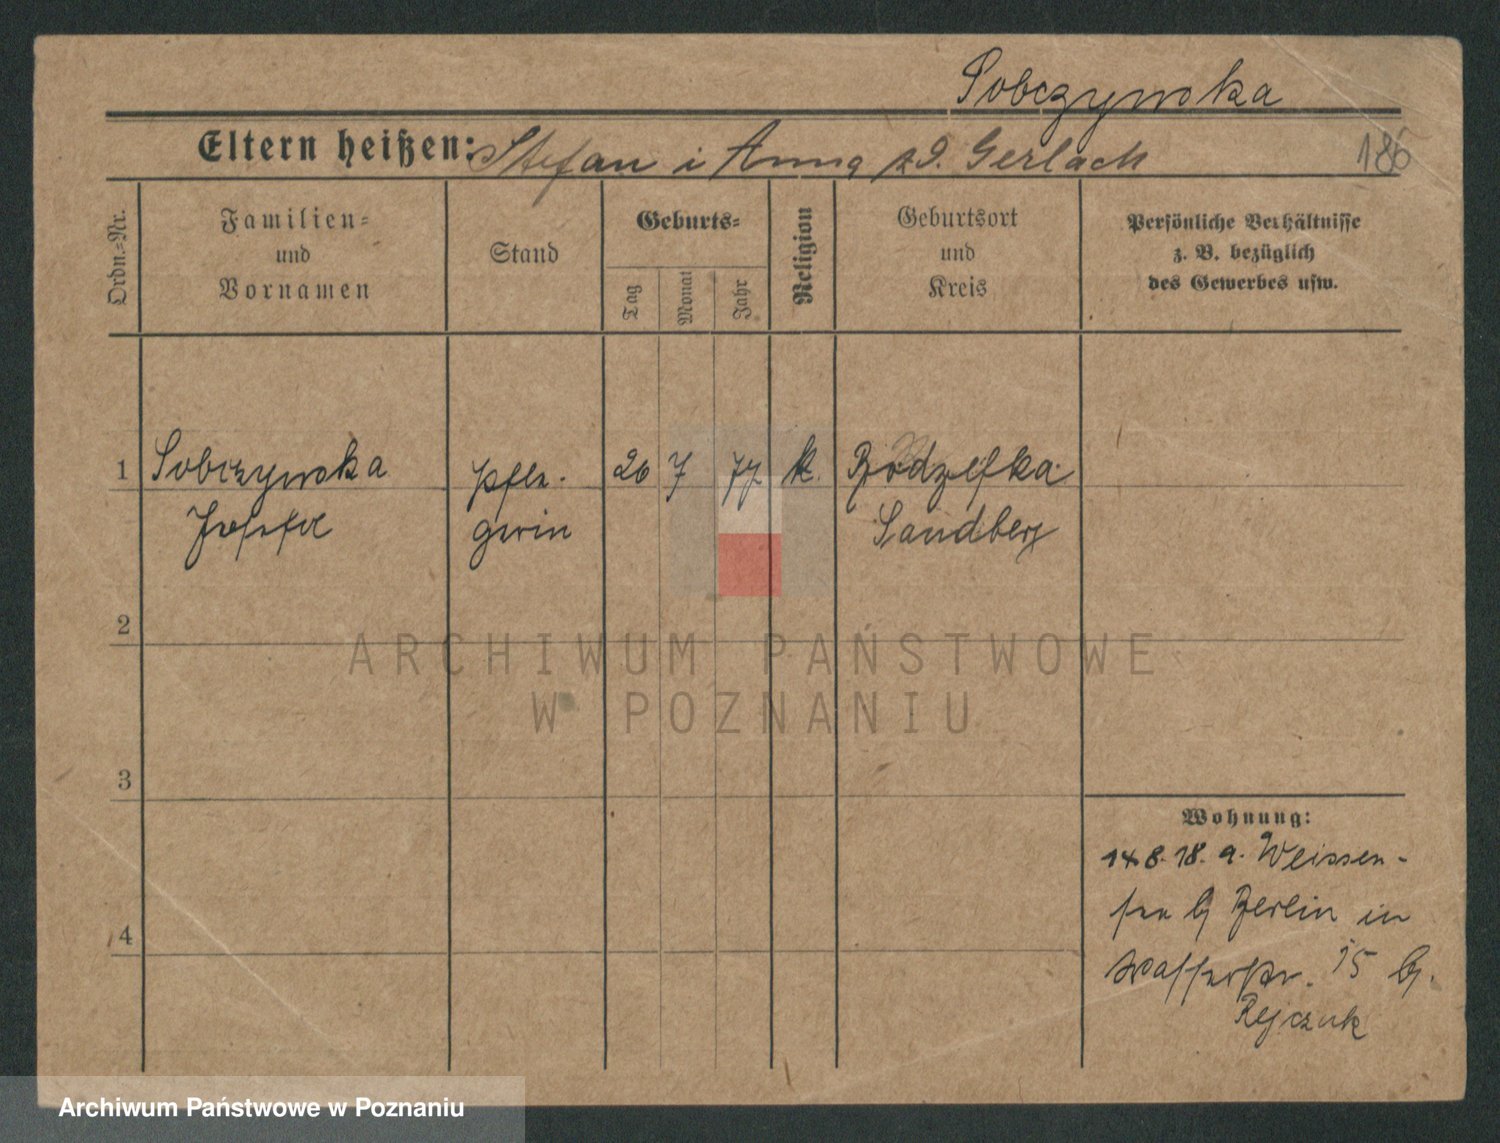 Sobczynska
Eltern heißen: Stefan i Anna zd. Gerlach
186
Ordn.-Nr.
Familien-
und
Vornamen
Stand
Geburts-
Tag
Monat
Jahr
Religion
Geburtsort
und
Kreis
Persönliche Verhältnisse
z. B. bezüglich
des Gewerbes usw.
1 Sobczynska
Josefa
Pfle-
gerin
26 7 77 k.
Rodzefka
Sandberg
2
3
4
Wohnung:
14 8. 18. a. Weissen-
see b/ Berlin in
Wasserstr. 15 b/.
Rejczuk
ARCHIWUM PAŃSTWOWE
W POZNANIU
Archiwum Państwowe w Poznaniu